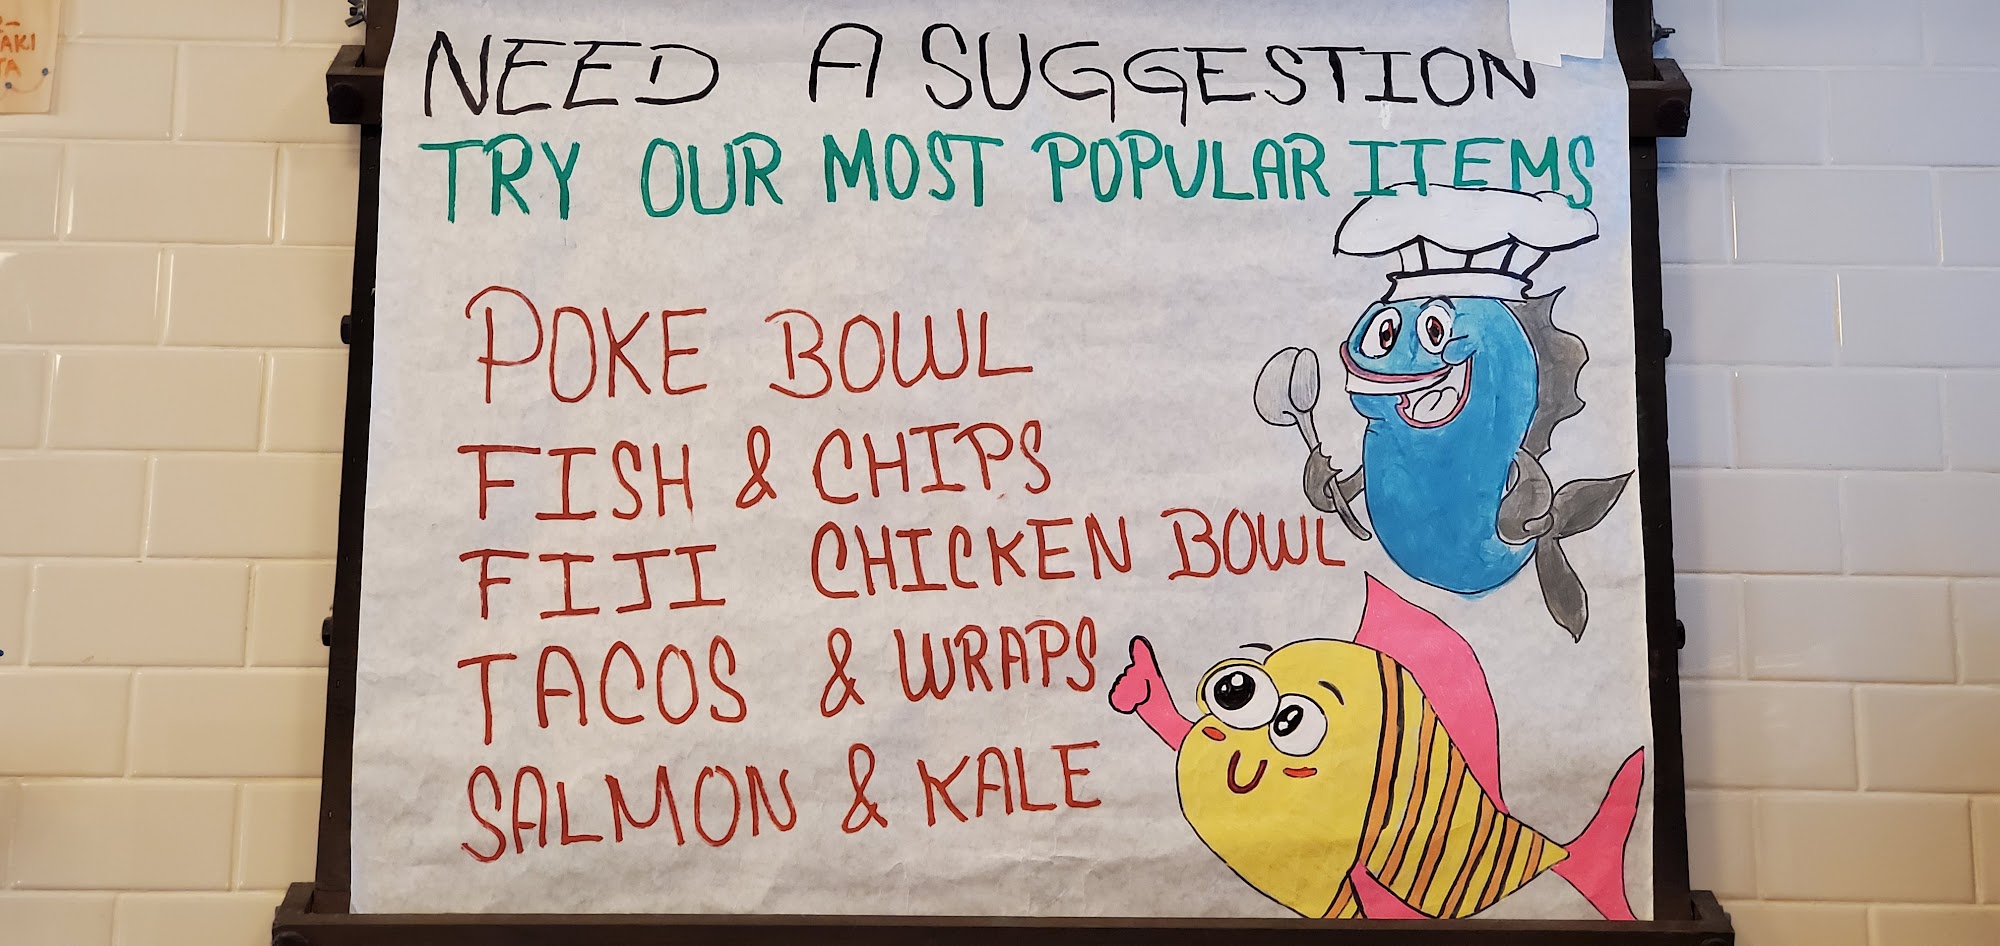 NEED A SUGGESTION
TRY OUR MOST POPULAR ITEMS
POKE BOWL
FISH & CHIPS
FIJI CHICKEN BOWL
TACOS & WRAPS
SALMON & KALE